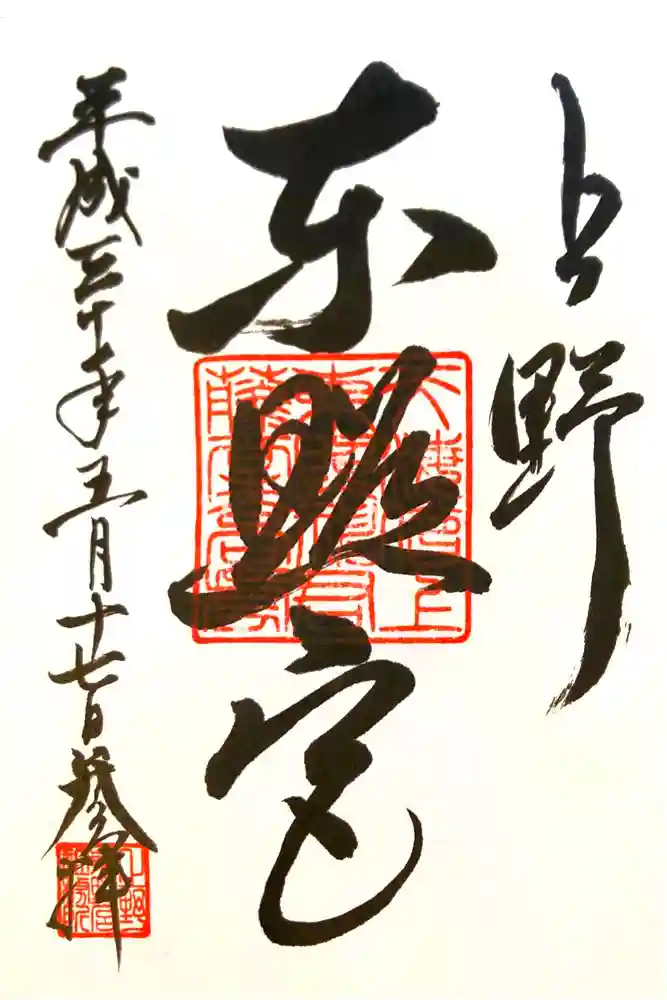 上野
東照宮
平成三十年五月十七日参拝